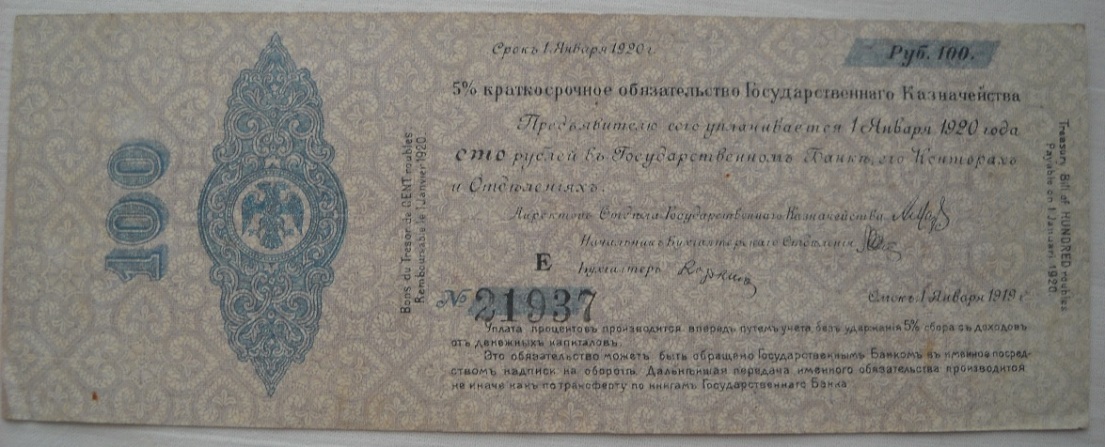 Срокъ 1 Января 1920 г.
Руб. 100.
5% краткосрочное обязательство Государственнаго Казначейства
Предъявителю сего уплачивается 1 Января 1920 года
сто рублей въ Государственномъ Банкѣ, его Конторахъ
и Отдѣленіяхъ.
Директоръ Отдѣла Государственнаго Казначейства
Начальникъ Бухгалтерскаго Отдѣленія
Бухгалтеръ
Е
№ 21937
Омскъ, 1 Января 1919 г.
Уплата процентовъ производится впередъ путемъ учета, безъ удержанія 5% сбора съ доходовъ
отъ денежныхъ капиталовъ.
Это обязательство можетъ быть обращено Государственнымъ Банкомъ въ именное посред-
ствомъ надписи на оборотѣ. Дальнѣйшая передача именного обязательства производится
не иначе какъ по трансферту по книгамъ Государственнаго Банка
100
Bons du Tresor de CENT roubles
Remboursable le 1 Janvier 1920
Treasury Bill of HUNDRED roubles
Payable on 1 Januari 1920